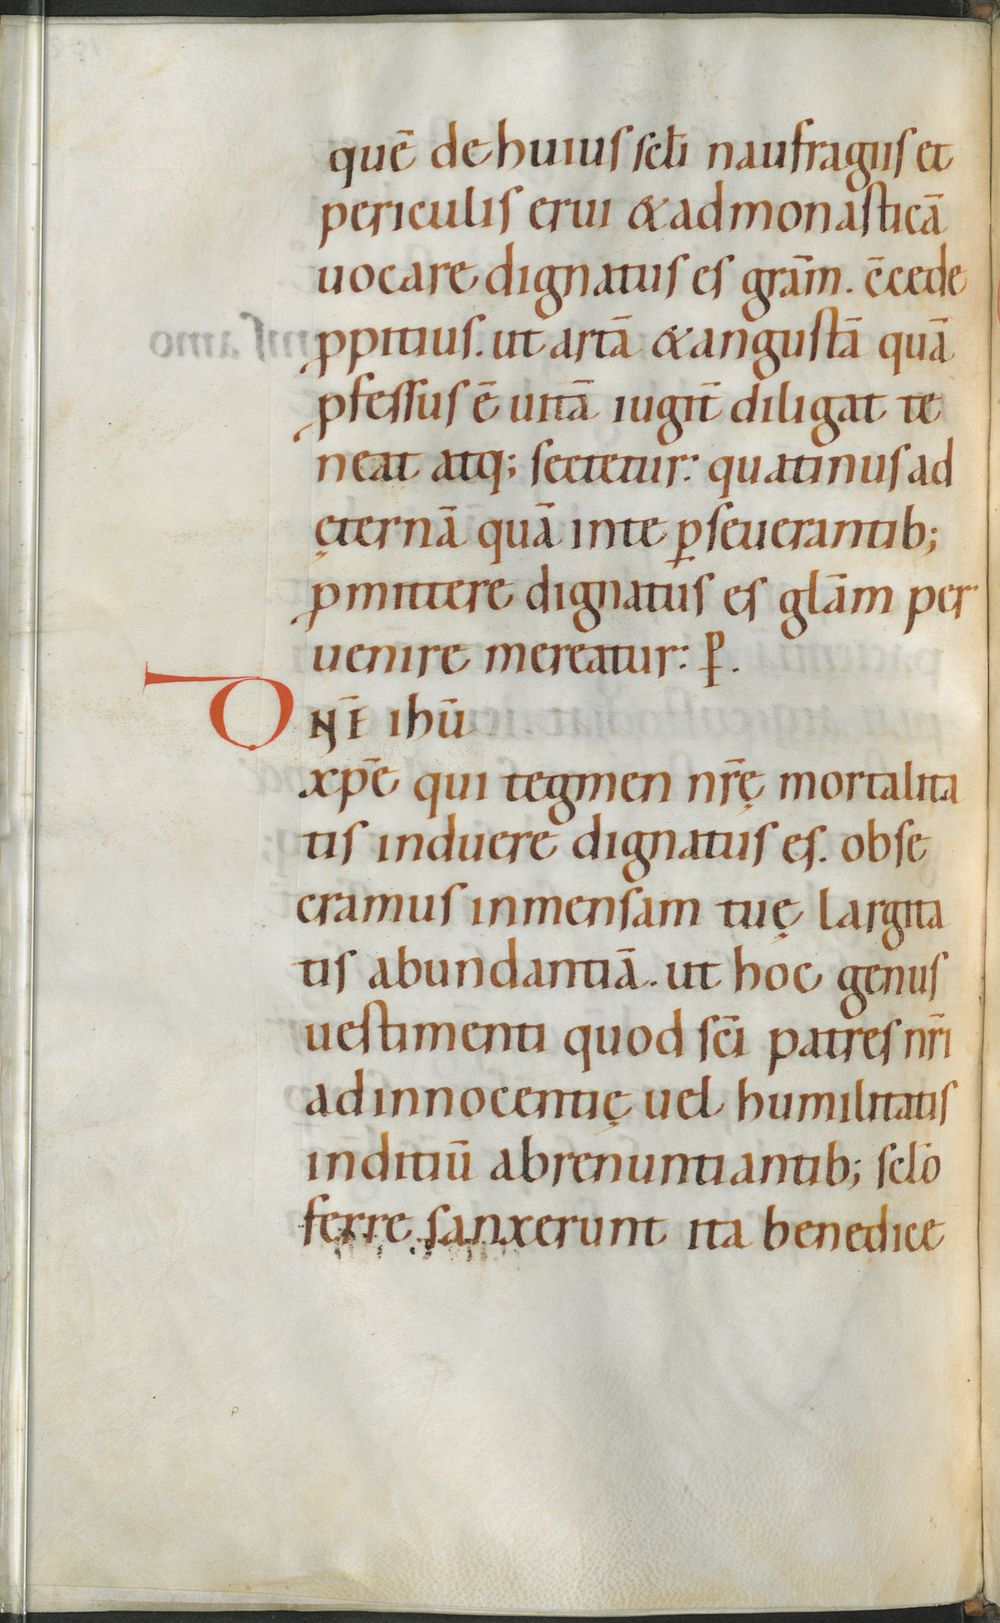 quē de huius scłi naufragiis et
periculis erui & ad monasticā
uocare dignatus es grām. c̄cede
ꝓpitius. ut artā & angustā quā
ꝓfessus ē uitā iugit̄ diligat te
neat atq; sectetur: quatinus ad
ęternā quā in te ꝑseuerantib;
ꝓmittere dignatus es glām per
uenire mereatur: ꝑ.
DN̄E ihū
xp̄e qui tegmen nr̄ę mortalita
tis induere dignatus es. obse
cramus inmensam tuę largita
tis abundantiā. ut hoc genus
uestimenti quod sc̄i patres nr̄i
ad innocentię uel humilitatis
inditiū abrenuntiantib; scło
ferre sanxerunt ita benedice